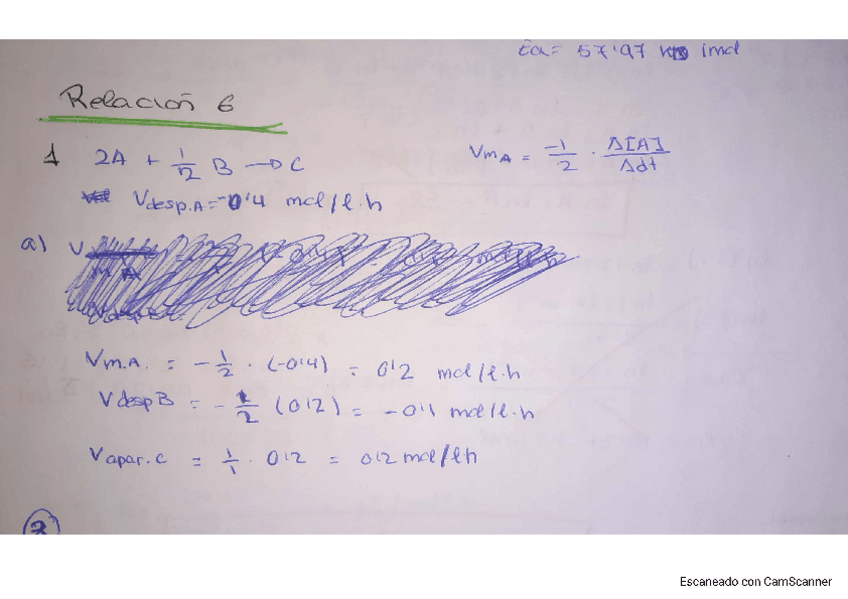 ta = 57'97 imd
Relación 6
1 2A + 1/2 B → C
Vm_A = -1/2 · Δ[A]/Δdt
Vdesp.A = -0'4 mol/l.h
a) V
Vm.A. = - 1/2 · (-0'4) = 0'2 mol/l.h
VdespB = - 1/2 (0'2) = -0'1 mol/l.h
Vapar.C = 1/1 · 0'2 = 0'2 mol/l.h
Escaneado con CamScanner